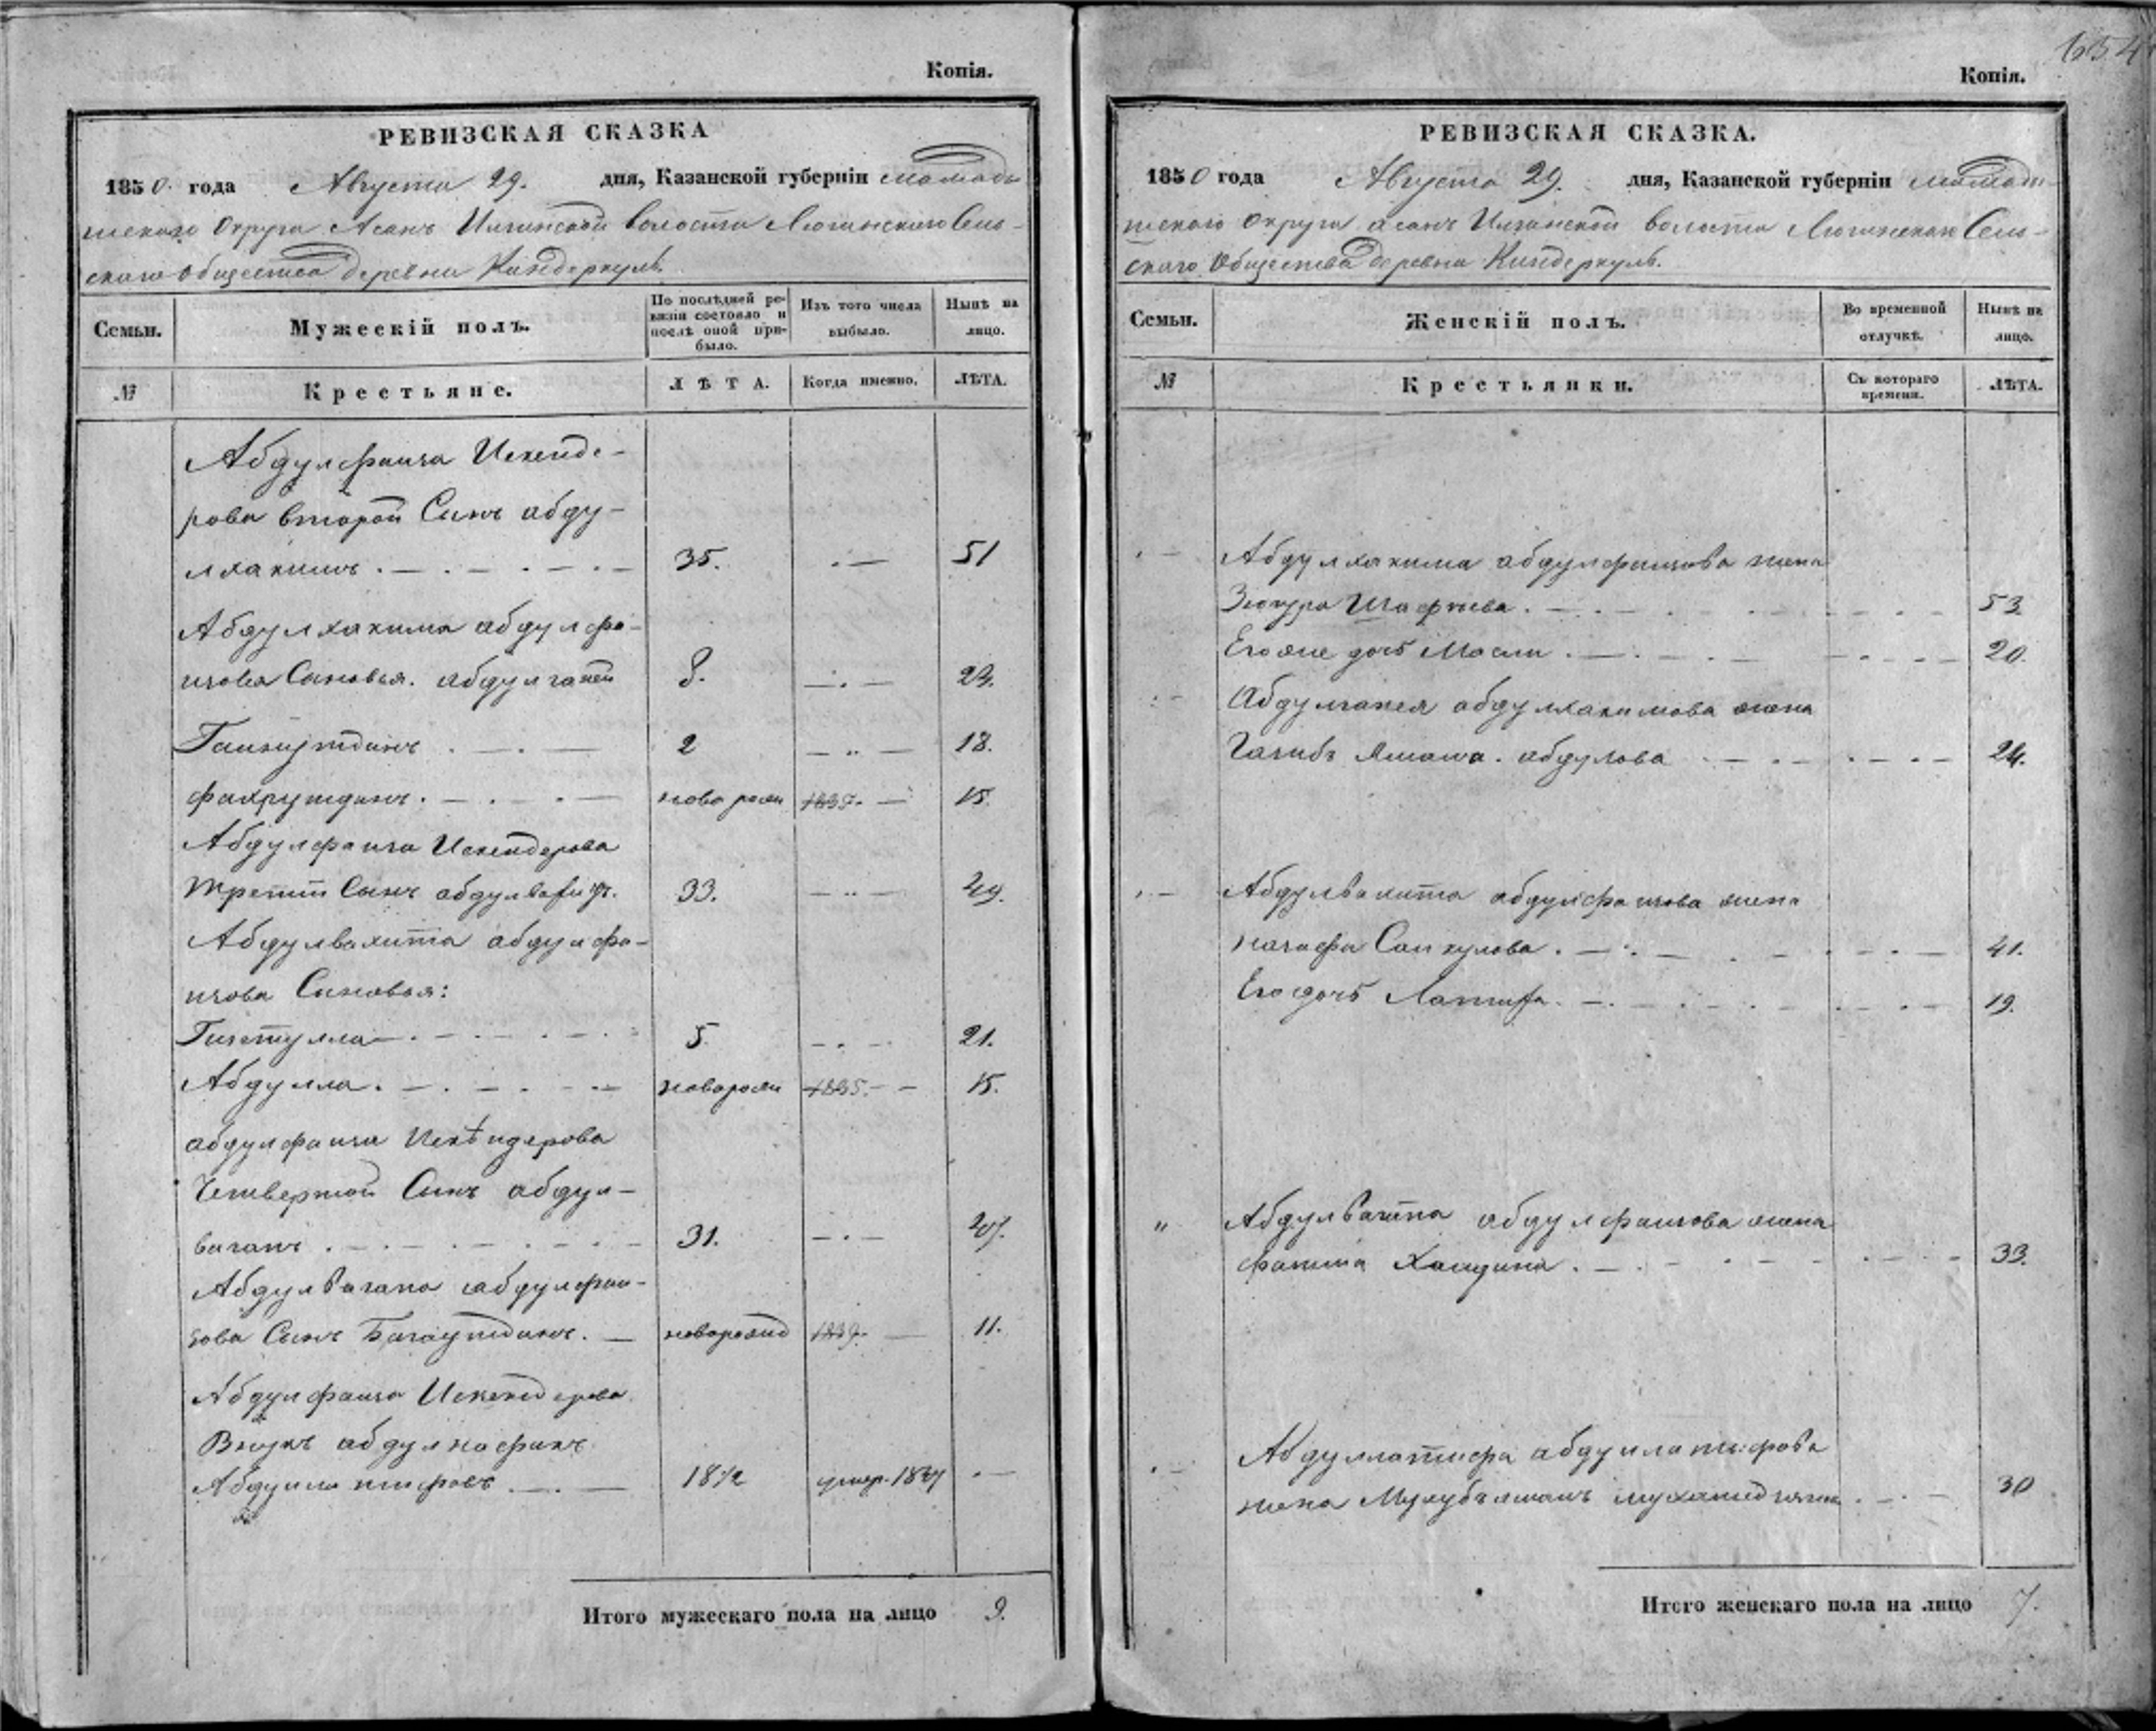 Копія.
РЕВИЗСКАЯ СКАЗКА
1850. года Августа 29. дня, Казанской губерніи Мамады-
шскаго Округа Асанъ Илгинской волости Люгинскаго Сель-
скаго Общества деревни Киндеркуль.
Семьи.
Мужескій полъ.
По послѣдней ре-
визіи состояло и
послѣ оной при-
было.
Изъ того числа
выбыло.
Нынѣ на
лицо.
№
Крестьяне.
ЛѢТА.
Когда именно.
ЛѢТА.
Абдулфаиза Искенде-
рова второй Сынъ абду-
лхакимъ 35. 51
Абдулхакима абдулфа-
изова Сыновья. абдулганей 8. 23.
Гайнутдинъ 2 18.
Фахрутдинъ. новорож 1835. 15.
Абдулфаиза Искендерова
третій Сынъ 33. 49.
Абдулвахита абдулфа-
изова Сыновья:
5. 21.
Абдулла. новорож 1835. 15.
абдулфаиза Искѣндерова
Четвертой Сынъ абдул-
вагапъ 31. 47.
Абдулвагапа абдулфаи-
зова Сынъ Багаутдинъ. новорожд 1839. 11.
Абдулфаиза Искендерова
Внукъ абдулнафикъ
Абдуллатифовъ 18 1/2 умер. 1847
Итого мужескаго пола на лицо 9.
654
Копія.
РЕВИЗСКАЯ СКАЗКА.
1850 года Августа 29. дня, Казанской губерніи Мамады-
шскаго округа асанъ Илгинской волости Люгинскаго Сель-
скаго Общества деревни Киндеркуль.
Семьи.
Женскій полъ.
Во временной
отлучкѣ.
Нынѣ на
лицо.
№
Крестьянки.
Съ котораго
времени.
ЛѢТА.
Абдулхакима абдулфаизова жена
Зюгура Шафѣева. 53
Его же дочь 20.
Абдулганея абдулхакимова жена
абдулова 24.
Абдулвахита абдулфаизова жена
41.
Его дочь Латифа. 19.
" абдулфаизова жена
33.
Абдуллатифа
жена 30
Итого женскаго пола на лицо 7.